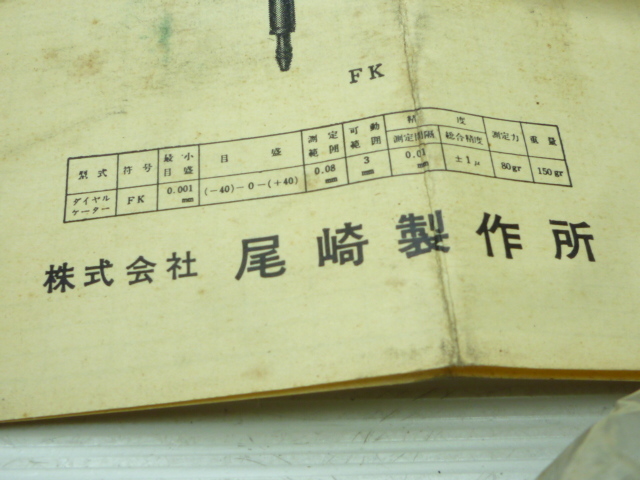 FK
型式 符号 最小目盛 目盛 測定範囲 可動範囲 精度 測定力 重量
測定間隔 総合精度
ダイヤルケーター FK 0.001mm (−40)−0−(+40) 0.08mm 3mm 0.01mm ±1μ 80gr 150gr
株式会社 尾崎製作所